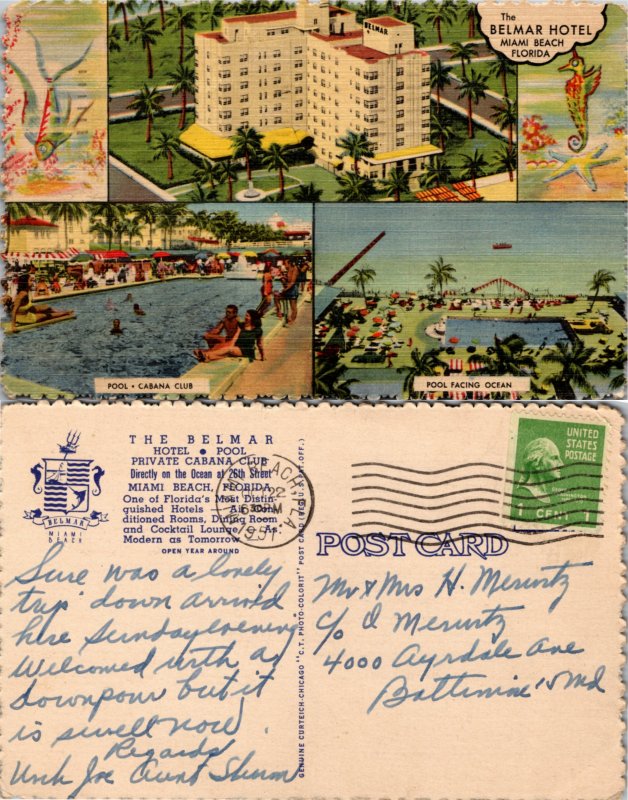 The
BELMAR HOTEL
MIAMI BEACH
FLORIDA
BELMAR
POOL • CABANA CLUB
POOL FACING OCEAN
THE BELMAR
HOTEL • POOL
PRIVATE CABANA CLUB
Directly on the Ocean at 26th Street
MIAMI BEACH, FLORIDA
One of Florida's Most Distin-
guished Hotels — Air Con-
ditioned Rooms, Dining Room
and Cocktail Lounge . . . As
Modern as Tomorrow
OPEN YEAR AROUND
BELMAR
MIAMI
BEACH
Sure was a lovely
trip down arrivd
here Sunday evening
Welcomed with a
downpour but it
is swell now.
Regards
Unk Joe Aunt
GENUINE CURTEICH-CHICAGO "C.T. PHOTO-COLORIT" POST CARD (REG. U.S. PAT. OFF.)
BEACH, FLA.
630PM
1951
UNITED
STATES
POSTAGE
1 CENT 1
POST CARD
Mr & Mrs H.
c/o
4000 Ayrdale Ave
Baltimore 15 Md